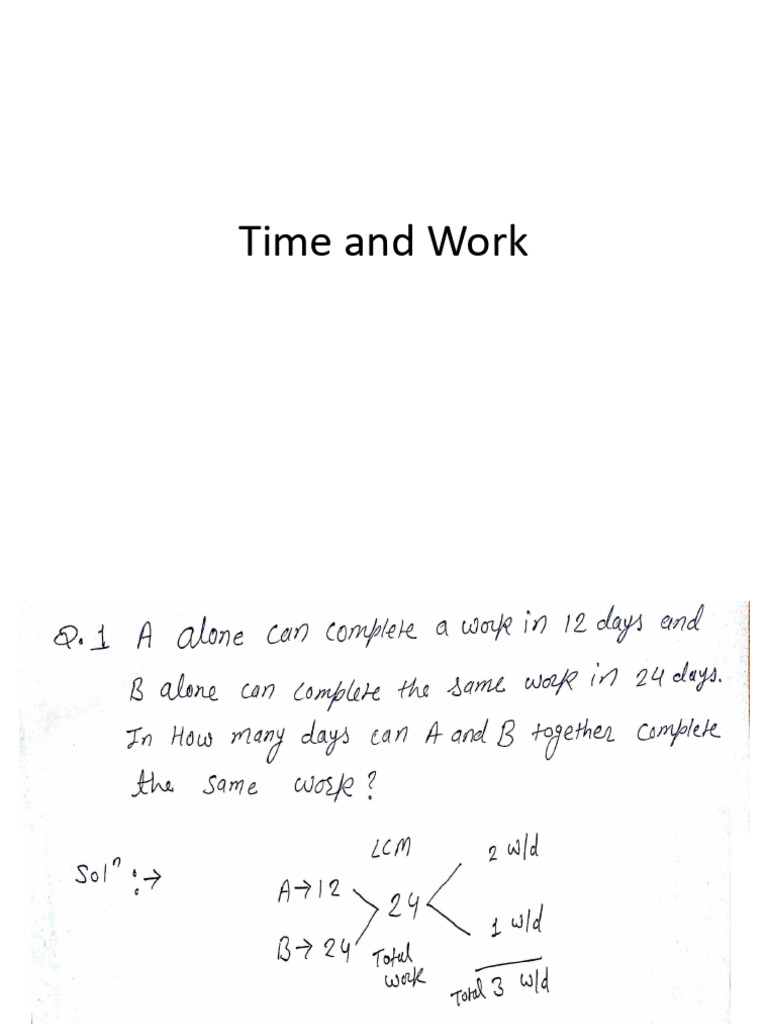 Time and Work
Q.1 A alone can complete a work in 12 days and
B alone can complete the same work in 24 days.
In How many days can A and B together complete
the same work?
Solⁿ :→
LCM
A→12
B→24
24
Total
work
2 w/d
1 w/d
Total 3 w/d